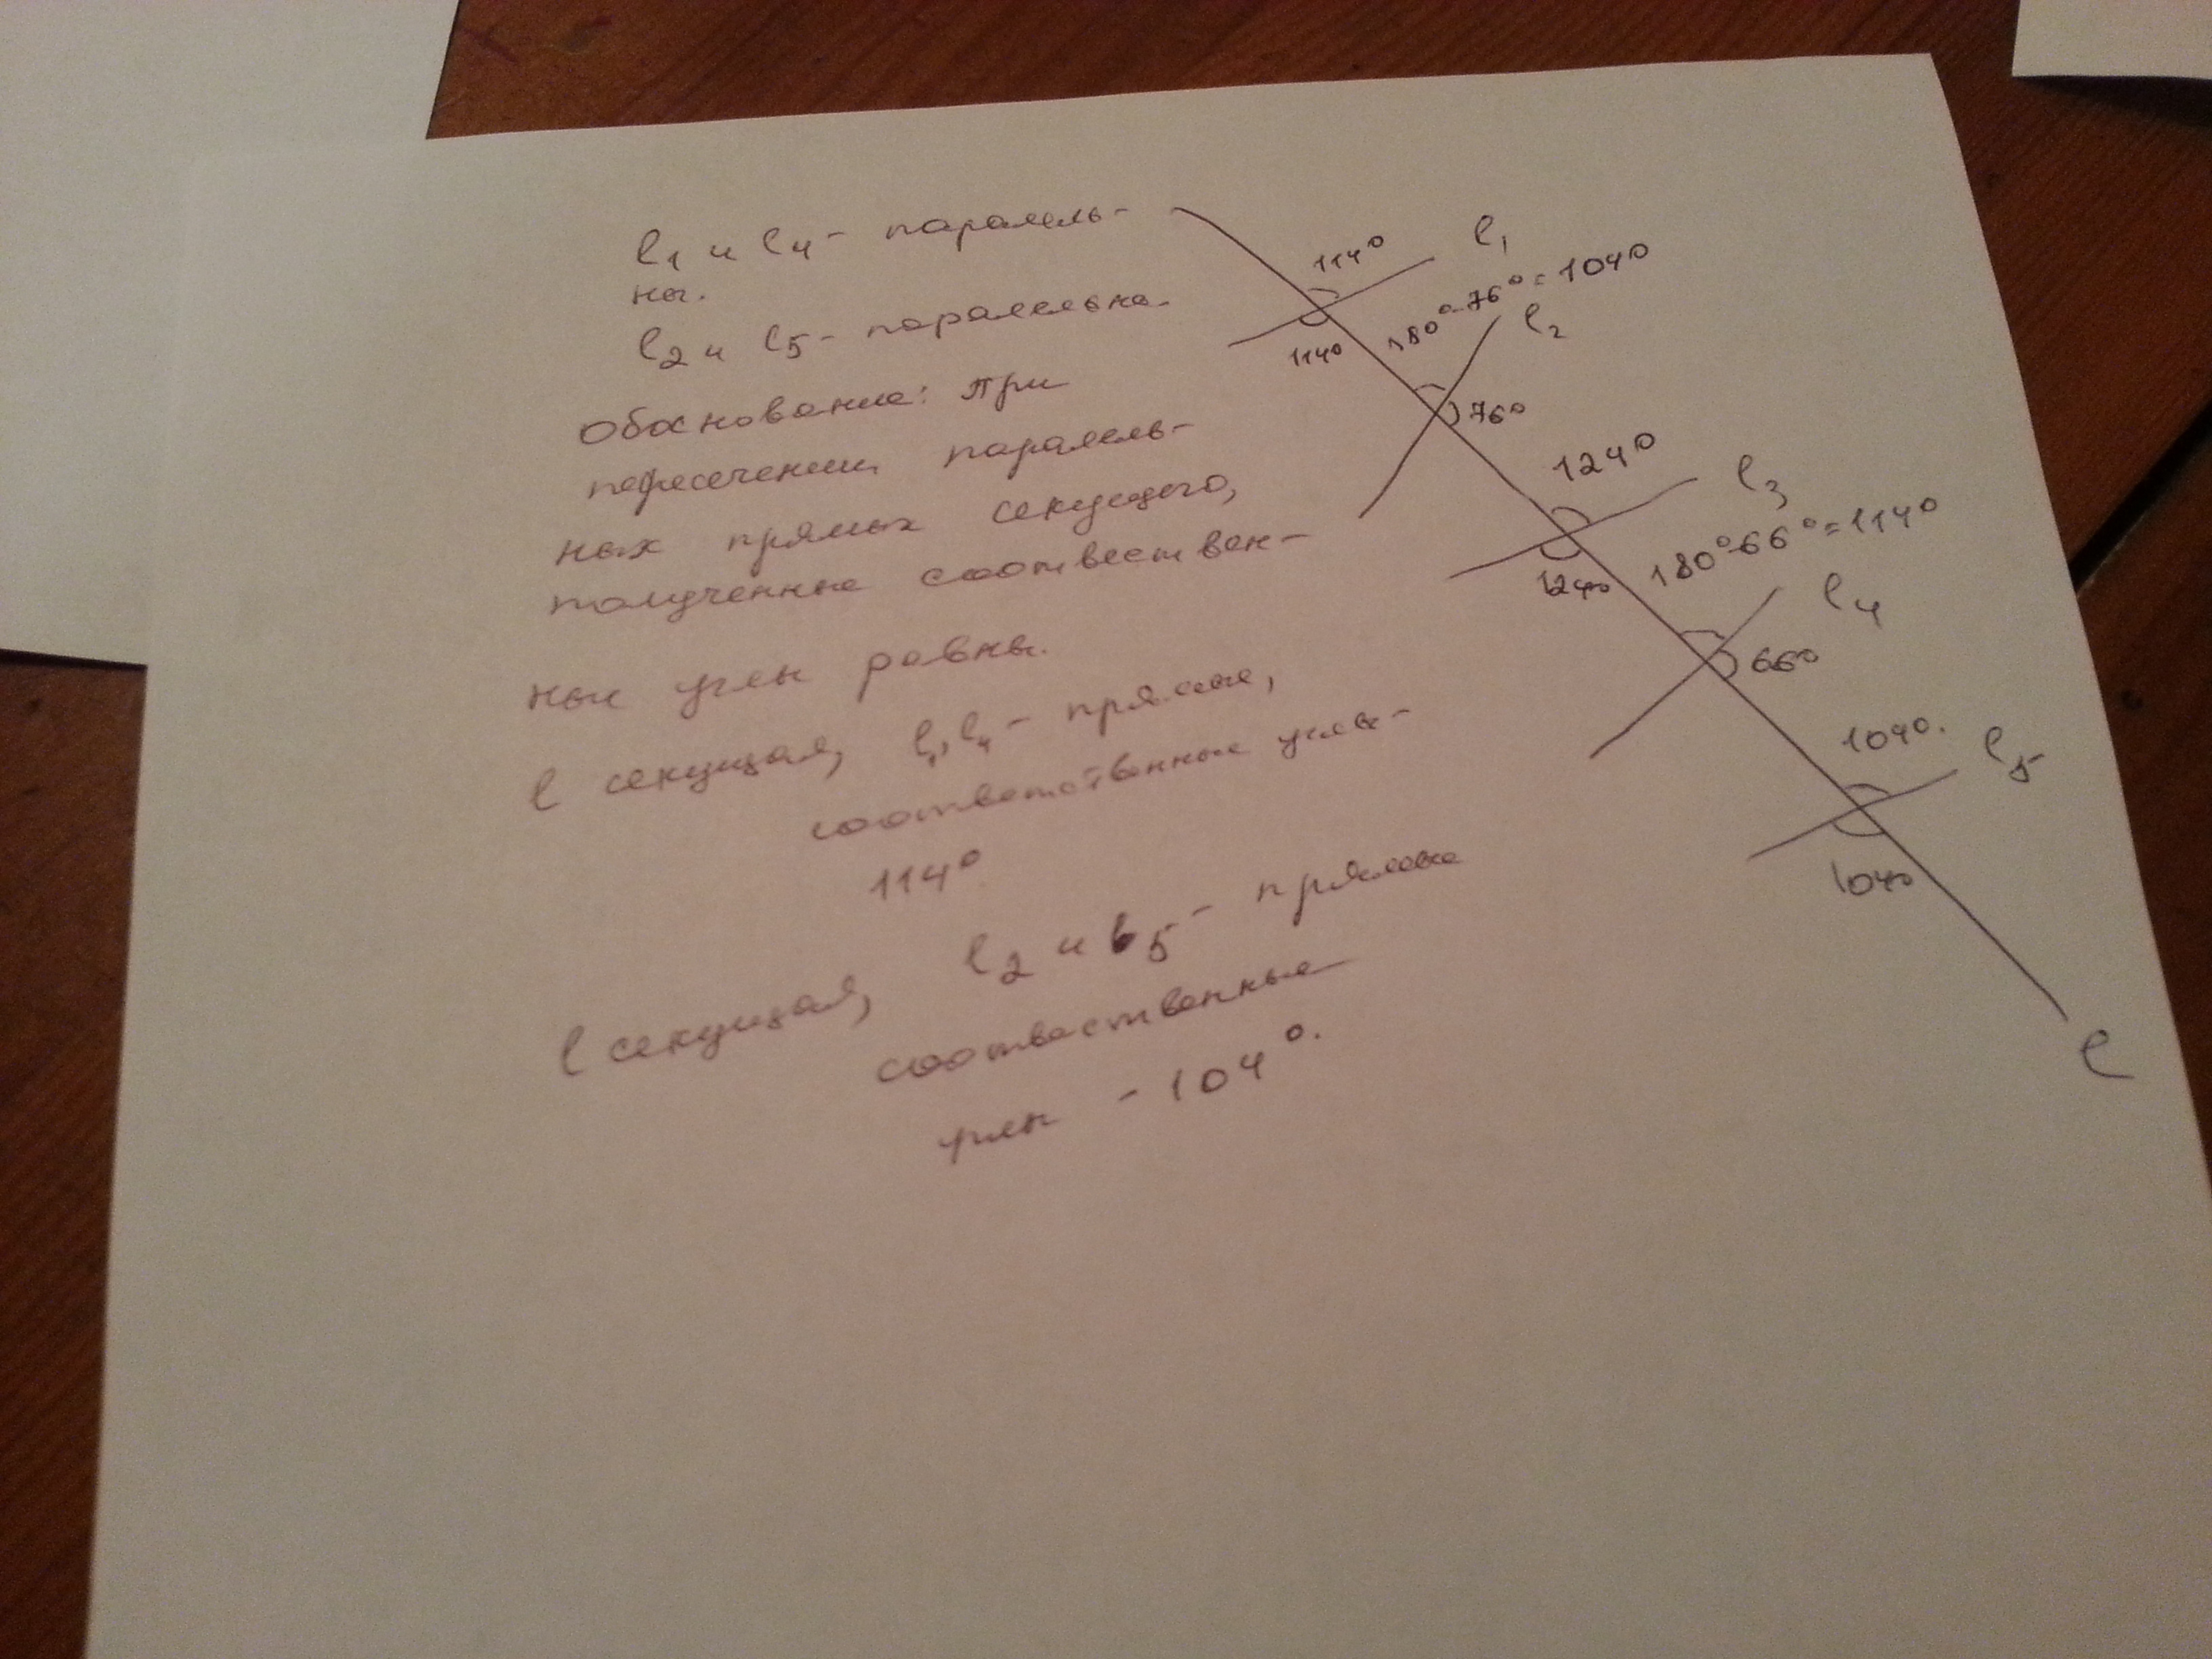 l₁ и l₄ - паралель-
ны.
l₂ и l₅ - паралельны.
Обоснование: При
пересечении паралель-
ных прямых секущего,
полученные соотвествен-
ные углы равны.
l секущая, l₁, l₄ - прямые,
соответственные углы -
114°
l секущая, l₂ и l₅ - прямые
соотвественные
углы - 104°.
114°
l₁
114°
180°-76°=104°
l₂
76°
124°
l₃
124°
180°-66°=114°
l₄
66°
104°.
l₅
104°
l